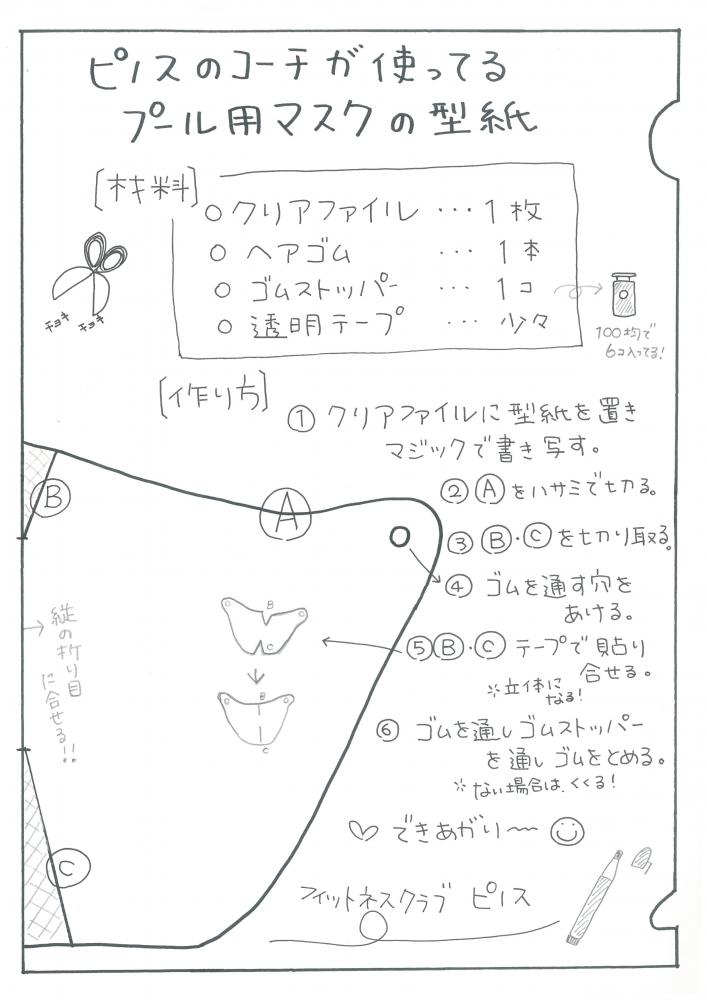 ピノスのコーチが使ってる
プール用マスクの型紙
[材料]
○ クリアファイル ・・・ 1枚
○ ヘアゴム ・・・ 1本
○ ゴムストッパー ・・・ 1コ
○ 透明テープ ・・・ 少々
チョキ チョキ
100均で
6コ入ってる!
[作り方]
① クリアファイルに型紙を置き
マジックで書き写す。
② Ⓐをハサミで切る。
③ Ⓑ・Ⓒを切り取る。
④ ゴムを通す穴を
あける。
⑤ Ⓑ・Ⓒ テープで貼り
合せる。
※立体に
なる!
⑥ ゴムを通しゴムストッパー
を通しゴムをとめる。
※ない場合は、くくる!
♡ できあがり〜
フィットネスクラブ ピノス
Ⓑ
Ⓐ
Ⓒ
→縦の折り目
に合せる!!
B
C
B
C